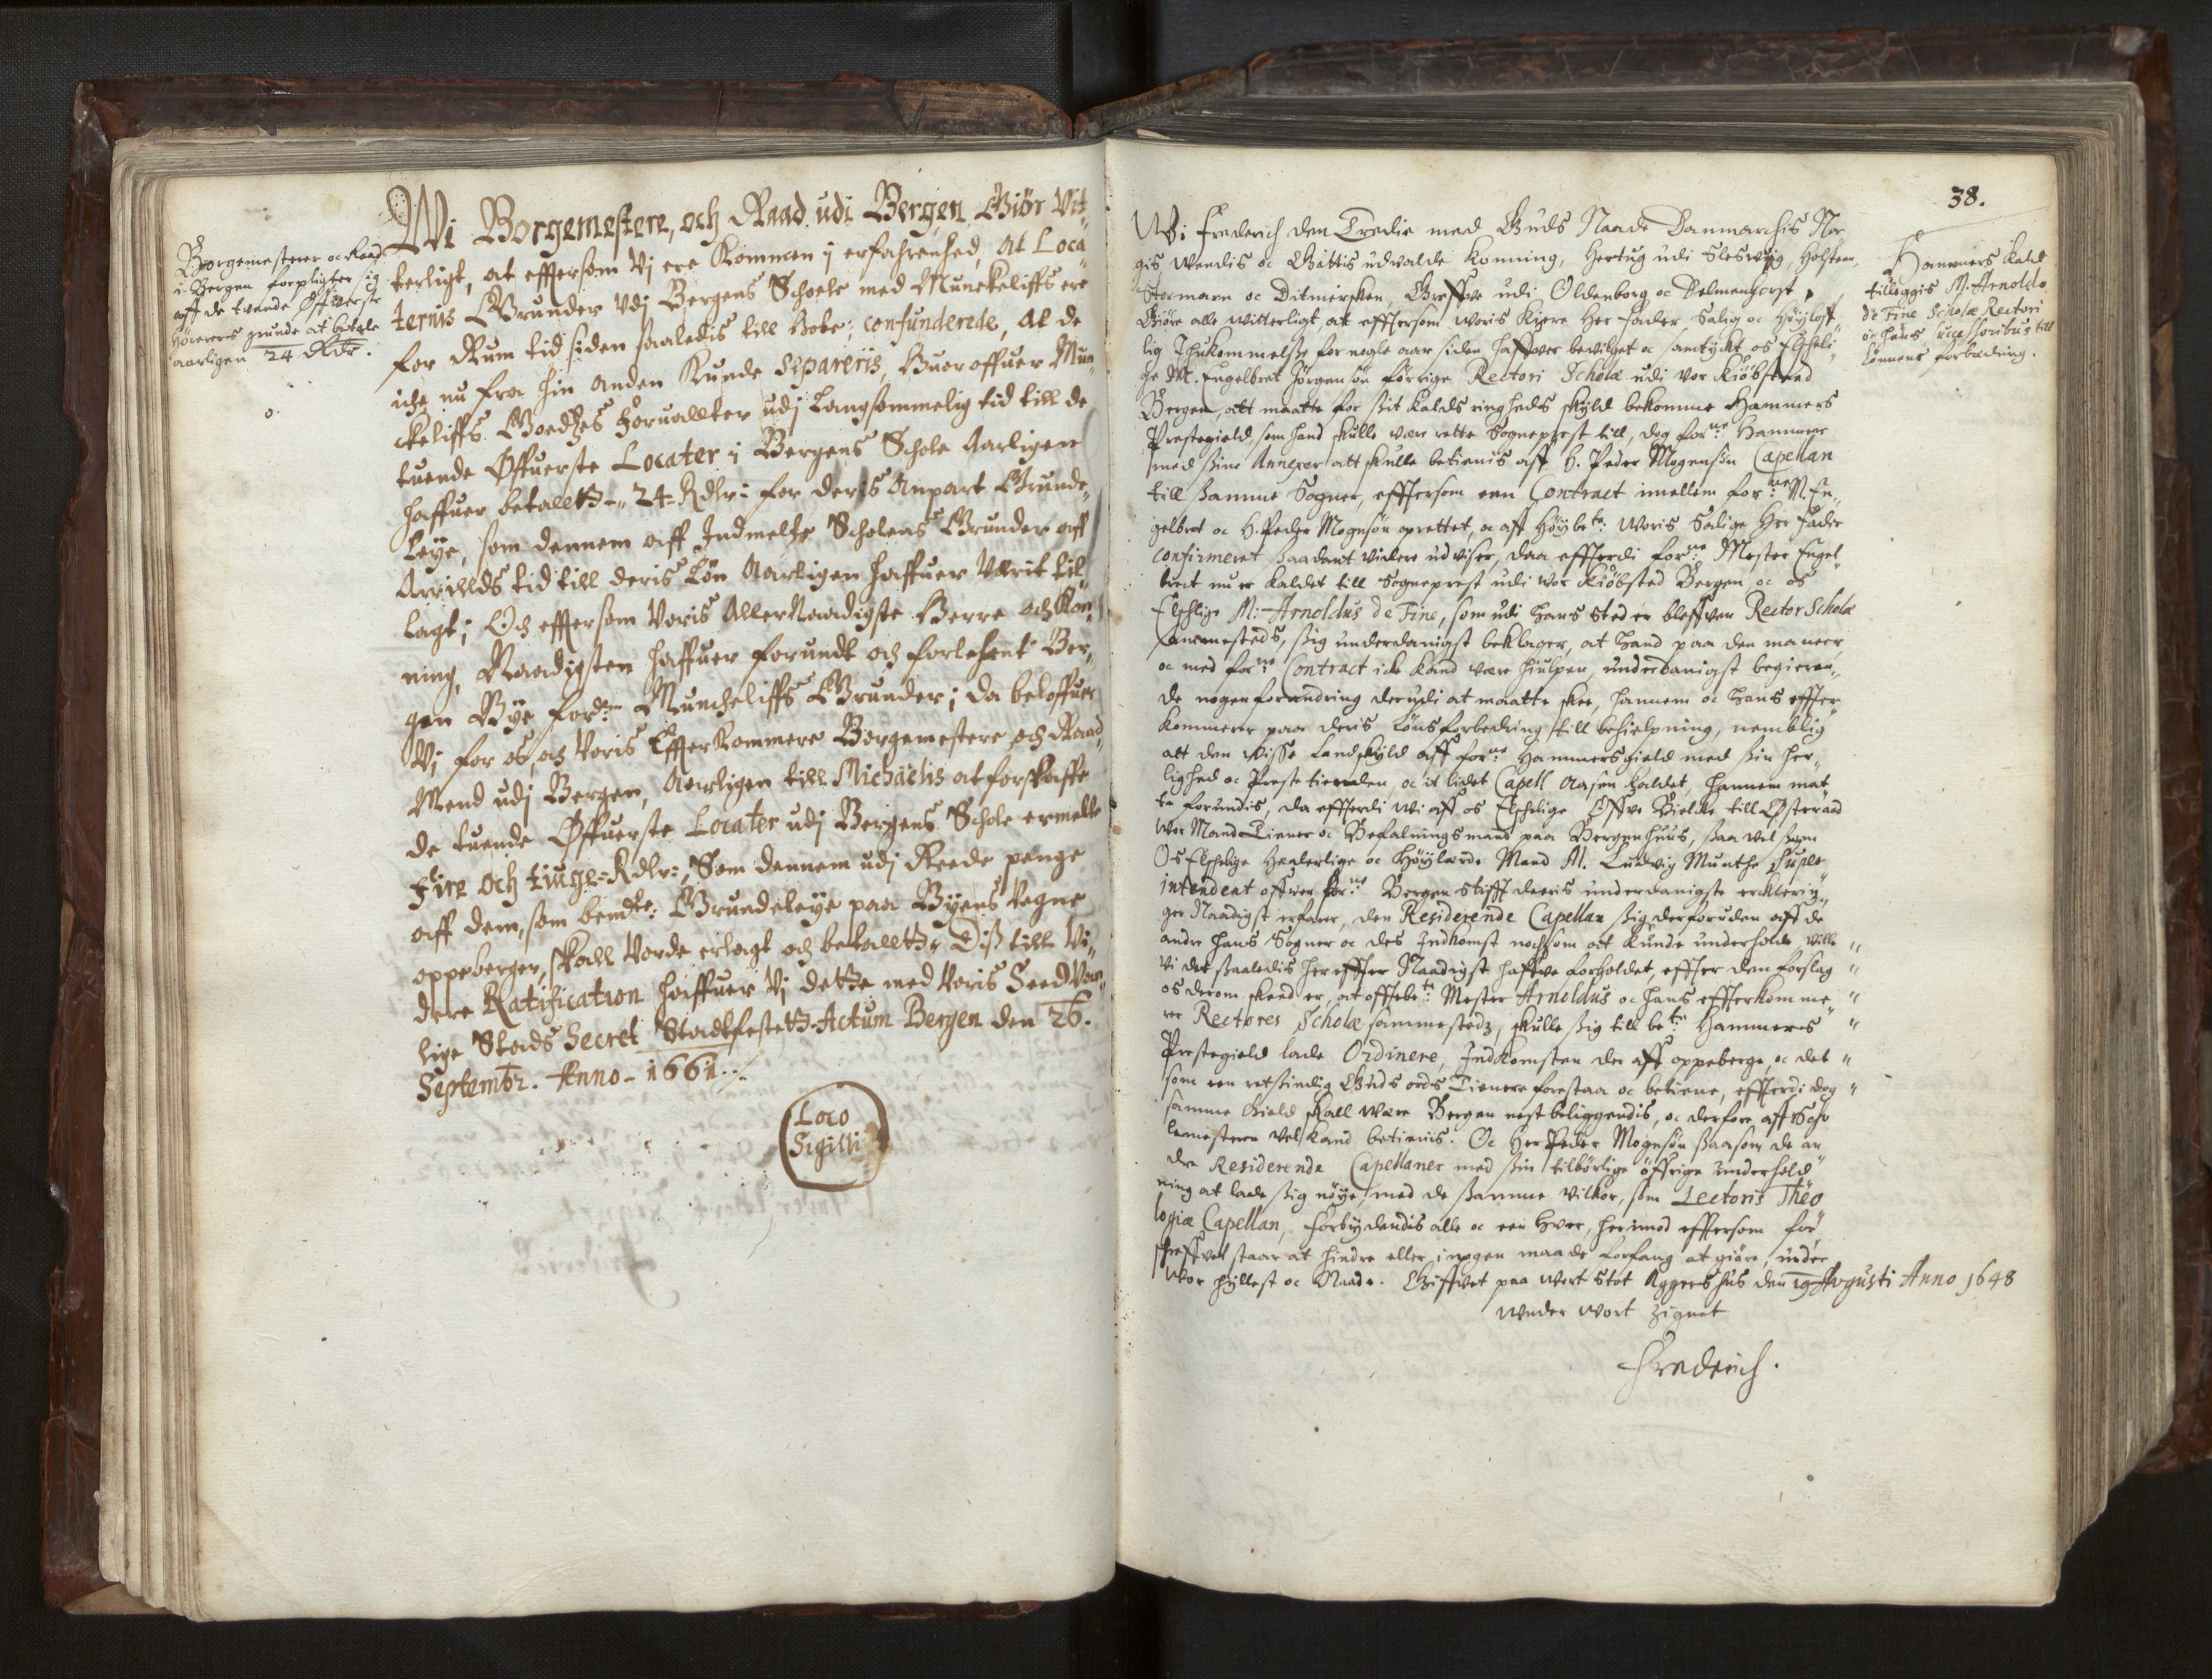 Borgemesterer oc Raad
i Bergen forpligter sig
aff de tvende Øfwerste
Hørerers grunde at betale
aarligen 24 Rdr.
Wi Borgemestere, och Raad udi Bergen Giör Vit„
terligt, at efftersom Vj ere Kommen i erfahrenhed, at Loca„
ternis Grunder udj Bergens Schoele med Munckeliffs ere
for Rum tid siden saaledis till Hobe, confunderede, at de
iche nu fra hin anden Kunde Separeris, Huor offuer Mun„
ckeliffs Goedtzes Foruallter udj Langsommelig tid till de
tuende Øffuerste Locater i Bergens Schole Aarligen
haffuer betallt 24 Rdlr: for deris Anpart Grunde„
Leÿe, som dennem aff Indmelte Scholens Grunder aff
Arrillds tid till deris Løn Aarligen haffuer Værit til„
lagt; Och effersom Voris AllerNaadigste Herre och Kon„
ning, Naadigsten haffuer forundt och forlehent Ber„
gen Bÿe fordne Muncheliffs Grunder; da beloffuer
Vj for os, och Voris EffterKommere Borgemestere och Raad„
Mend udj Bergen, Aarligen till Michaëlis at forskaffe
de tuende Øffuerste Locater udj Bergens Schole ermelte
Fire och tiuge Rdlr:, Som dennem udj Reede penge
aff dem, som bemdte: Grundeleÿe paa Bÿens Vegne
oppeberger, skall Vorde erlagt och betallt. Diß till Vi„
dere Ratification haffuer Vj dette med Voris SeedVan„
lige Stads Secret Stadtfestet. Actum Bergen den 26.
Septembr. Anno 1661.
Loco
Sigilli
38.
Hammers Kald
tilleggis M. Arnoldo
de Fine Scholæ Rectori
oc hans successoribus till
lønnens forbedring.
Wi Frederich den Tredie med Guds Naade Danmarchis Nor
gis Wendis oc Gottis udvalde Konning, Hertug udi Sleswiig, Holsten,
Stormarn oc Ditmersken, Greffve udi Oldenborg oc Delmenhorst
Giøre alle witterligt, at effttersom woris Kiere Her Fader Salig oc Høyloff
lig Ihukommelse for nogle aar siden haffver bevilget oc samtyckt os Elsheli„
ge M. Engelbret Jørgensøn forrige Rectori Scholæ udi vor Kiøbsted
Bergen, att maatte for sit Kalds ringheds skyld bekomme Hammers
Prestegield, som hand skulle være rette Sogneprest till, dog forne: Hammer
med sine Annexer att skulle betienis aff H. Peder Mogensøn Capellan
till samme Sogner, effttersom een Contract imellem forne: M. En„
gelbret oc H. Peder Mogensøn oprettet, oc aff Høybete: Woris Salige Her Fader
confirmeret saadant videre udviser, daa effterdi forne: Mester Engel„
bret nu er kaldet till Sogneprest udi vor Kiøbsted Bergen, oc os
Elschlige M: Arnoldus de Fine, som udi hans sted er bleffven Rector Scholæ
sammesteds, sig underdanigst beklager, at hand paa den maneer
oc med forne: Contract icke kand være hiulpen, underdanigst begieren„
de nogen forandring derudi at maatte skee, hannem oc hans effter
kommere paa deris Løns forbedring till behielpning, nemblig
att den wisse Landskyld aff forne: Hammersgield med sin her„
lighed oc Preste tienden, oc it lidet Capell Aasen kaldet, hannem mat„
te forundis, da effterdi wi aff os Elschelige Offve Bielcke till Østeraad
Wor Mand Tiener oc Befalningsmand paa Bergenhuus, saa vel som
Os Elschelige Hæderlige oc Høylærde Mand M. Ludvig Munthe Supe„
intendent offver forne: Bergen stifft deeris underdanigste erklerin„
ger Naadigst erfarer, den Residerende Capellan sig derforuden aff de
andre hans Sogner oc des Indkomst nochsom at kunde underholde, ville
Vi det saaledis her effter Naadigst haffve forholdet, effter den forslag
os derom skeed er, at offtebete: Mester Arnoldus oc hans effterkomme
rer Rectores Scholæ sammestedz, skulle sig till bete: Hammers
Prestegield lade Ordinere, Indkomsten der aff oppeberge, oc det
som een retsindig Guds ords Tienere forestaa oc betiene, effterdi dog
samme Gield skall være Bergen nest beliggendis, oc derfore aff Scho
lemesteren vel kand betienis. Oc Her Peder Mogensøn saasom de an
dre Residerende Capellaner med sin tilbørlige øffrige underhold
ning at lade sig nøye, med de samme vilkor, som Lectoris Theo
logiæ Capellan, Forbydendis alle oc een hver, herimod effttersom for
schreffvet staar at hindre eller i nogen maade forfang at giøre, under
Wor hyllest oc Naade. Giffvet paa Wort Slot Aggershus den 19 Augusti Anno 1648
Under Wort Zignet
Frederich.